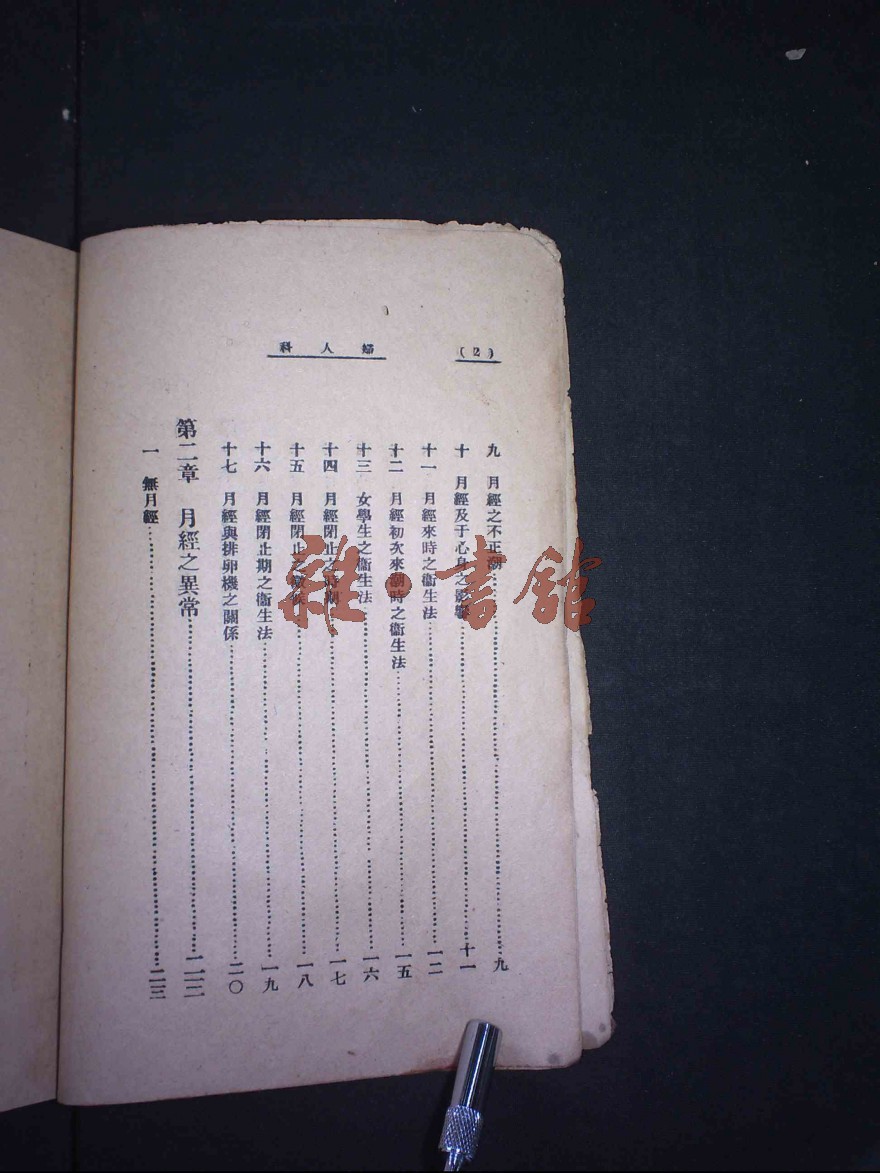 (2)
婦人科
九 月經之不正潮……九
十 月經及于心身之影響……十一
十一 月經來時之衞生法……一二
十二 月經初次來潮時之衞生法……一五
十三 女學生之衞生法……一六
十四 月經閉止之時期……一七
十五 月經閉止之……一八
十六 月經閉止期之衞生法……一九
十七 月經與排卵機之關係……二〇
第二章 月經之異常……二二
一 無月經……二三
雜·書館